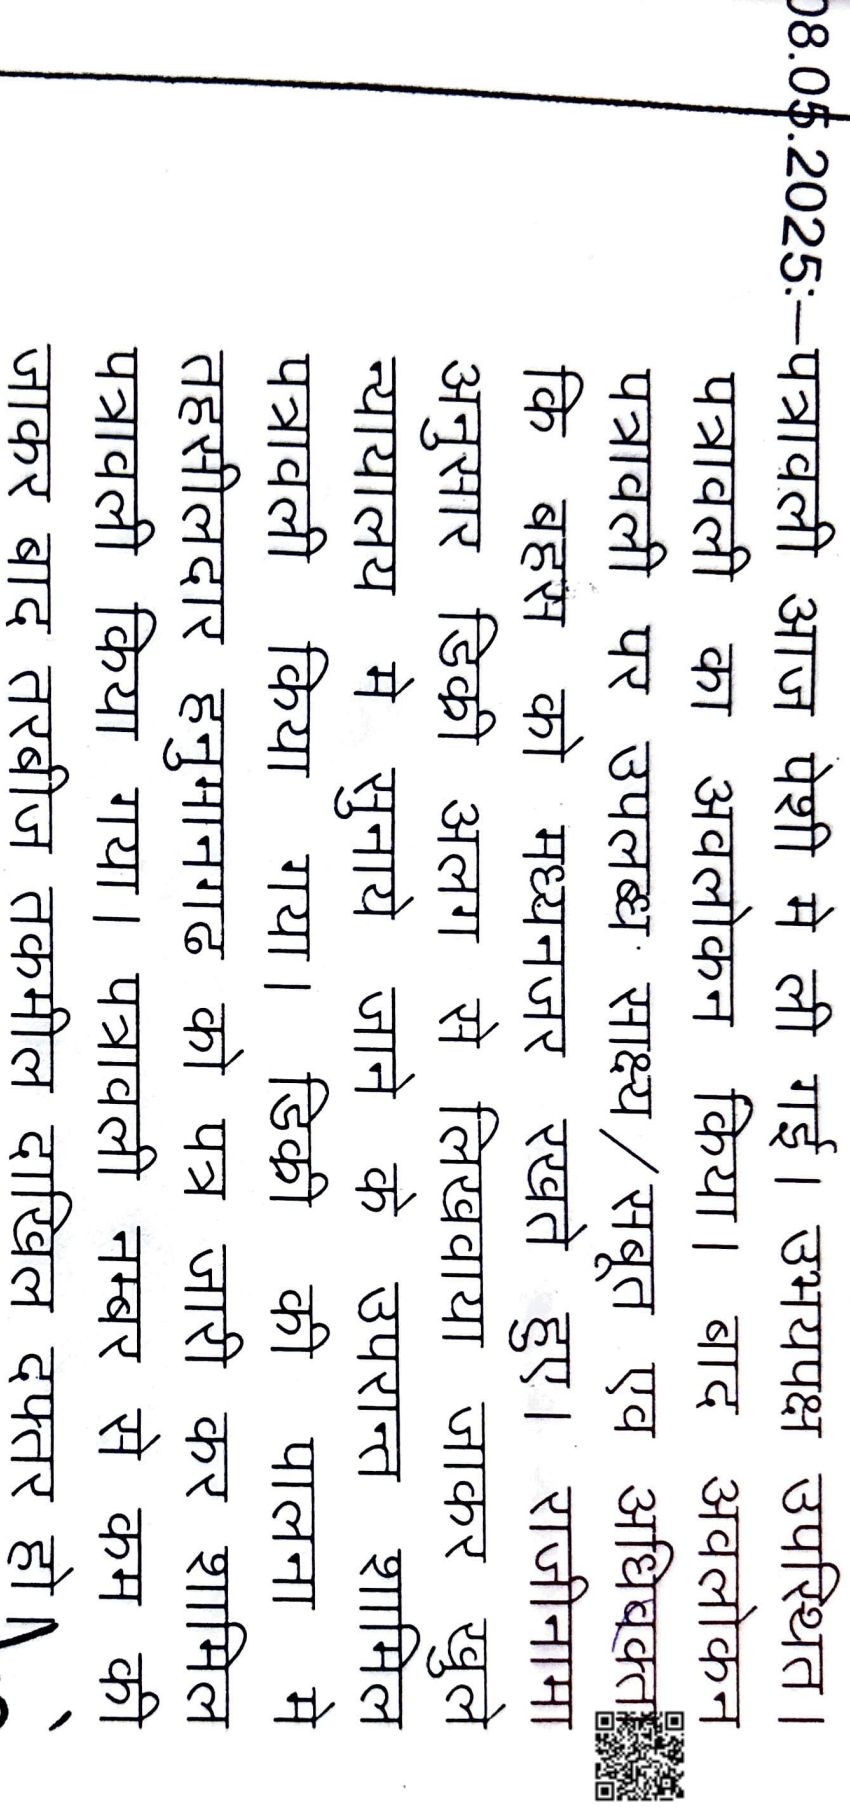 08.05.2025:—पत्रावली आज पेशी मे ली गई। उभयपक्ष उपस्थित।
पत्रावली का अवलोकन किया। बाद अवलोकन
पत्रावली पर उपलब्ध साक्ष्य/सबूत एव अधिवक्त
कि बहस को मध्यनजर रखते हुए। राजीनामा
अनुसार डिकी अलग से लिखवाया जाकर खुले
न्यायालय मे सुनाये जाने के उपरान्त शामिल
पत्रावली किया गया। डिकी की पालना मे
तहसीलदार हनुमानगढ को पत्र जारी कर शामिल
पत्रावली किया गया। पत्रावली नम्बर से कम की
जाकर बाद तरबीज तकमील दाखिल दफ्तर हो।